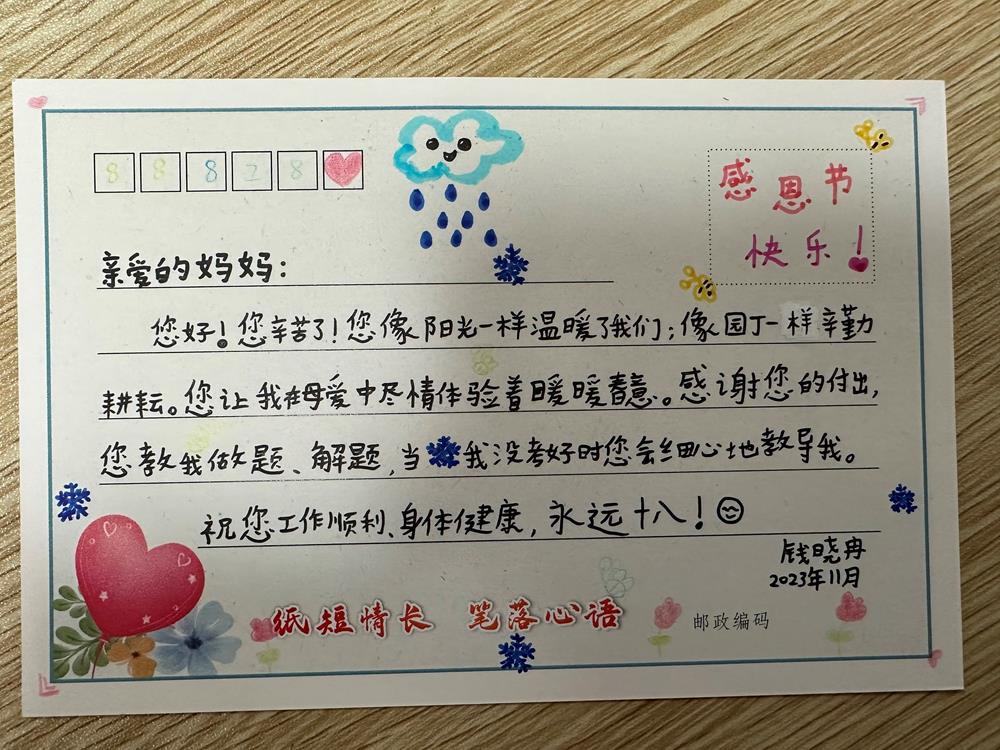 88828
感恩节
快乐!
亲爱的妈妈:
您好!您辛苦了!您像阳光一样温暖了我们;像园丁一样辛勤
耕耘。您让我在母爱中尽情体验着暖暖春意。感谢您的付出,
您教我做题、解题,当我没考好时您会细心地教导我。
祝您工作顺利、身体健康,永远十八!
钱晓冉
2023年11月
纸短情长 笔落心语
邮政编码